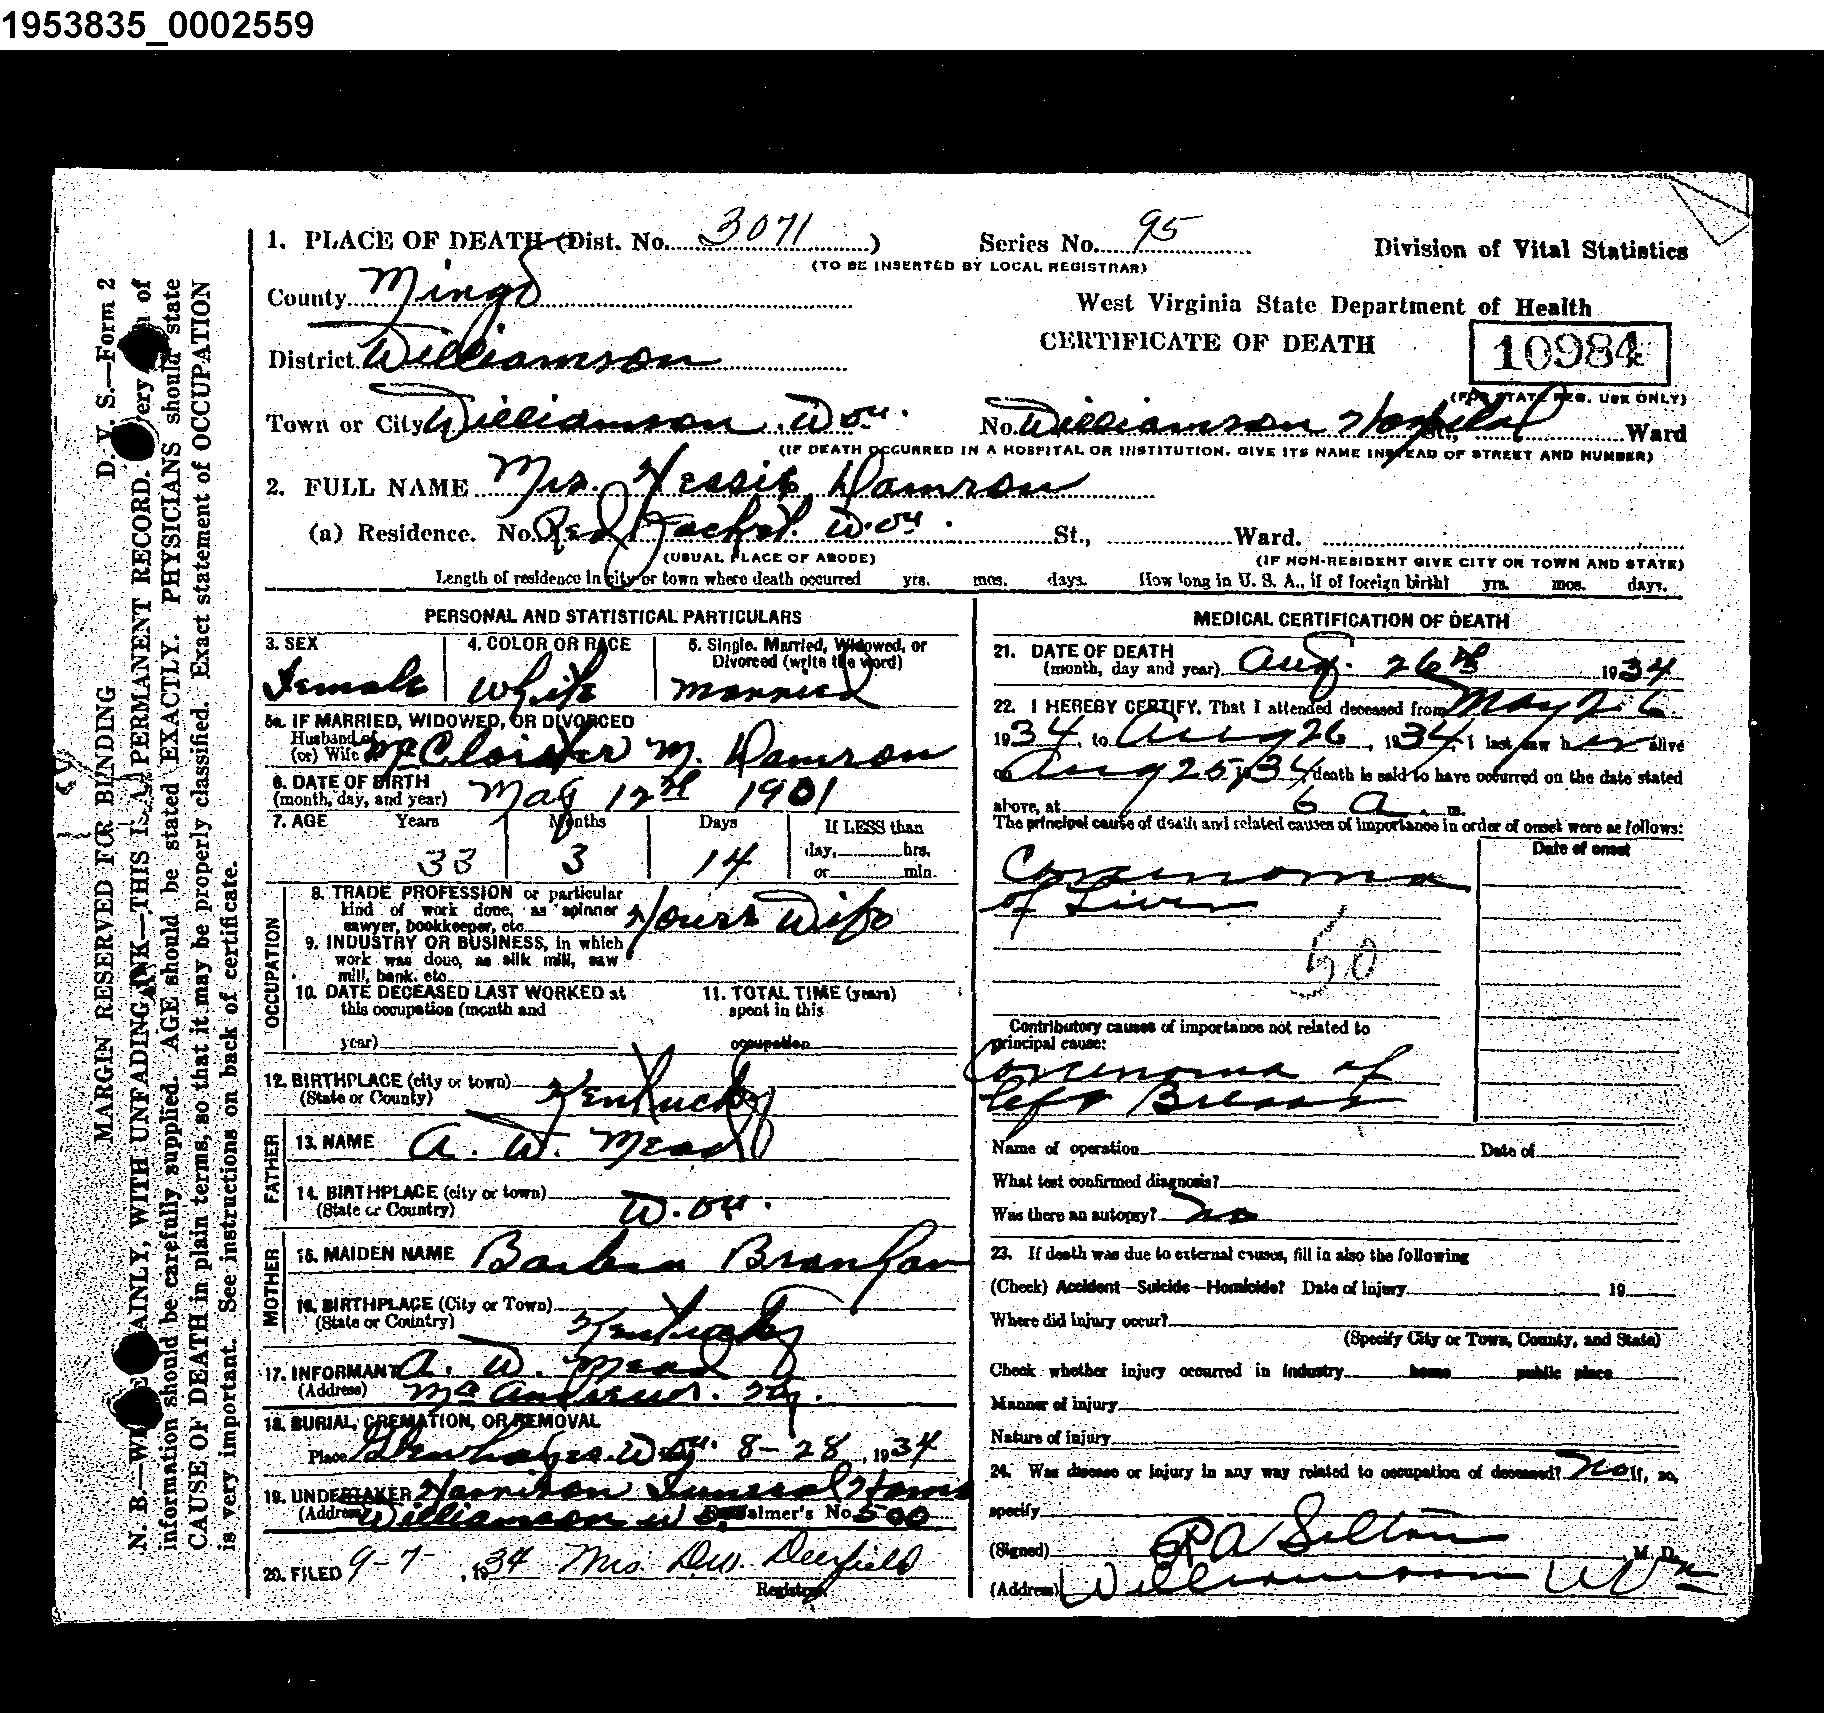 1953835_0002559
1. PLACE OF DEATH (Dist. No. 3071 ) Series No. 95 Division of Vital Statistics
(TO BE INSERTED BY LOCAL REGISTRAR)
County Mingo West Virginia State Department of Health
CERTIFICATE OF DEATH 10984
District Williamson
(FOR STATE REG. USE ONLY)
Town or City Williamson, W. Va. No. Williamson Hospital St., Ward
(IF DEATH OCCURRED IN A HOSPITAL OR INSTITUTION, GIVE ITS NAME INSTEAD OF STREET AND NUMBER)
2. FULL NAME Mrs. Hessie Damron
(a) Residence. No. Red Jacket. W. Va. St., Ward.
(USUAL PLACE OF ABODE) (IF NON-RESIDENT GIVE CITY OR TOWN AND STATE)
Length of residence in city or town where death occurred yrs. mos. days. How long in U. S. A., if of foreign birth? yrs. mos. days.
PERSONAL AND STATISTICAL PARTICULARS
3. SEX 4. COLOR OR RACE 5. Single, Married, Widowed, or
Divorced (write the word)
Female White Married
5a. IF MARRIED, WIDOWED, OR DIVORCED
Husband of
(or) Wife McCloister M. Damron
6. DATE OF BIRTH
(month, day, and year) May 12th 1901
7. AGE Years Months Days If LESS than
day, hrs.
33 3 14 or min.
OCCUPATION
8. TRADE PROFESSION or particular
kind of work done, as spinner
sawyer, bookkeeper, etc. House Wife
9. INDUSTRY OR BUSINESS, in which
work was done, as silk mill, saw
mill, bank, etc
10. DATE DECEASED LAST WORKED at 11. TOTAL TIME (years)
this occupation (month and spent in this
year) occupation
12. BIRTHPLACE (city or town)
(State or County) Kentucky
FATHER
13. NAME A. W. Mead
14. BIRTHPLACE (city or town)
(State or Country) W. Va.
MOTHER
15. MAIDEN NAME Barbara Branham
16. BIRTHPLACE (City or Town)
(State or Country) Kentucky
17. INFORMANT A. W. Mead
(Address) Ky.
18. BURIAL, CREMATION, OR REMOVAL
Place Glenhayes. W. Va. 8-28, 1934
19. UNDERTAKER Harrison Funeral Home
(Address) Williamson W. Va. Embalmer's No 500
20. FILED 9-7-, 1934 Mrs. Deerfield
Registrar
MEDICAL CERTIFICATION OF DEATH
21. DATE OF DEATH
(month, day and year) Aug. 26th 1934
22. I HEREBY CERTIFY, That I attended deceased from May 26
1934, to Aug 26, 1934, I last saw her alive
on Aug 25, 34, death is said to have occurred on the date stated
above, at 6 a. m.
The principal cause of death and related causes of importance in order of onset were as follows:
Date of onset
Carcinoma
of Liver
50
Contributory causes of importance not related to
principal cause:
Carcinoma of
left Breast
Name of operation Date of
What test confirmed diagnosis?
Was there an autopsy? no
23. If death was due to external causes, fill in also the following
(Check) Accident—Suicide—Homicide? Date of injury 19
Where did injury occur?
(Specify City or Town, County, and State)
Check whether injury occurred in industry home public place
Manner of injury
Nature of injury
24. Was disease or injury in any way related to occupation of deceased? no If, so,
specify
(Signed) M. D.
(Address) Williamson W Va
D. V. S.—Form 2
MARGIN RESERVED FOR BINDING
N. B.—WRITE PLAINLY, WITH UNFADING INK—THIS IS A PERMANENT RECORD. Every item of
information should be carefully supplied. AGE should be stated EXACTLY. PHYSICIANS should state
CAUSE OF DEATH in plain terms, so that it may be properly classified. Exact statement of OCCUPATION
is very important. See instructions on back of certificate.